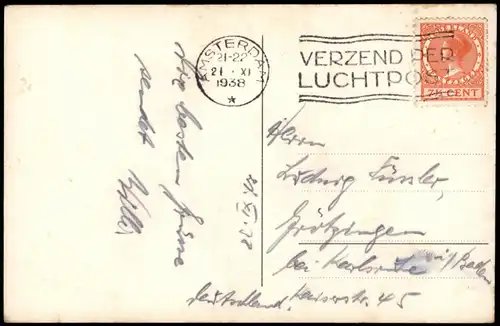 AMSTERDAM
21-22
21 · XI
1938
VERZEND PER
LUCHTPOS
7½ CENT
Die besten Grüsse
sendet Willi
Herrn
Ludwig
Grötzingen
bei Karlsruhe i/Baden
Kaiserstr. 45
Deutschland.